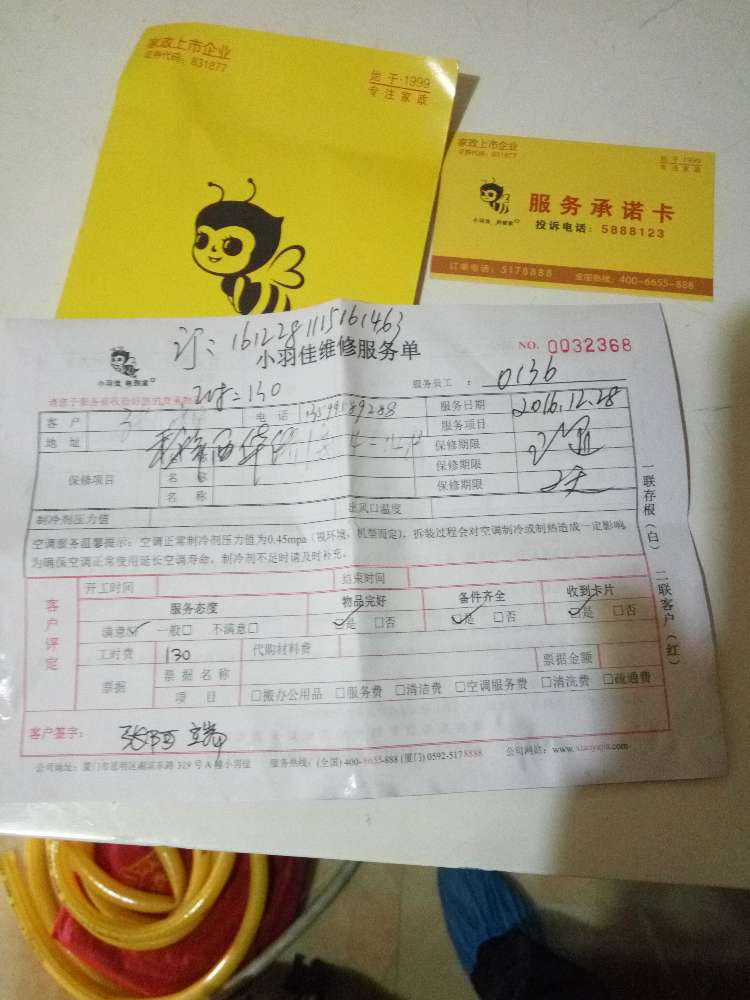 家政上市企业
证券代码：831877
始于·1999
专注家政
家政上市企业
证券代码：831877
始于·1999
专注家政
服务承诺卡
投诉电话：5888123
订单电话：5178888 全国热线：400-6655-888
订：1612281115161463
小羽佳维修服务单
NO. 0032368
小羽佳
=130
服务员工：0136
客户 电话 服务日期 2016.12.28
地址 服务项目
保修项目 名称 保修期限
名称 保修期限
保修期限
制冷剂压力值 出风口温度
空调服务温馨提示：空调正常制冷剂压力值为0.45mpa（视环境、机型而定），拆装过程会对空调制冷或制热造成一定影响，
为确保空调正常使用延长空调寿命，制冷剂不足时请及时补充。
一联存根（白） 二联客户（红）
客户评定
开工时间 结束时间
服务态度 物品完好 备件齐全 收到卡片
满意☑ 一般□ 不满意□ ☑是 □否 ☑是 □否 ☑是 □否
工时费 130 代购材料费
票据 票据名称 票据金额
项目 □搬办公用品 □服务费 □清洁费 □空调服务费 □清洗费 □疏通费
客户签字：
公司地址：厦门市思明区湖滨东路319号A幢小羽佳 服务热线：(全国) 400-6655-888 (厦门) 0592-5178888 公司网站：www.xiaoyujia.com